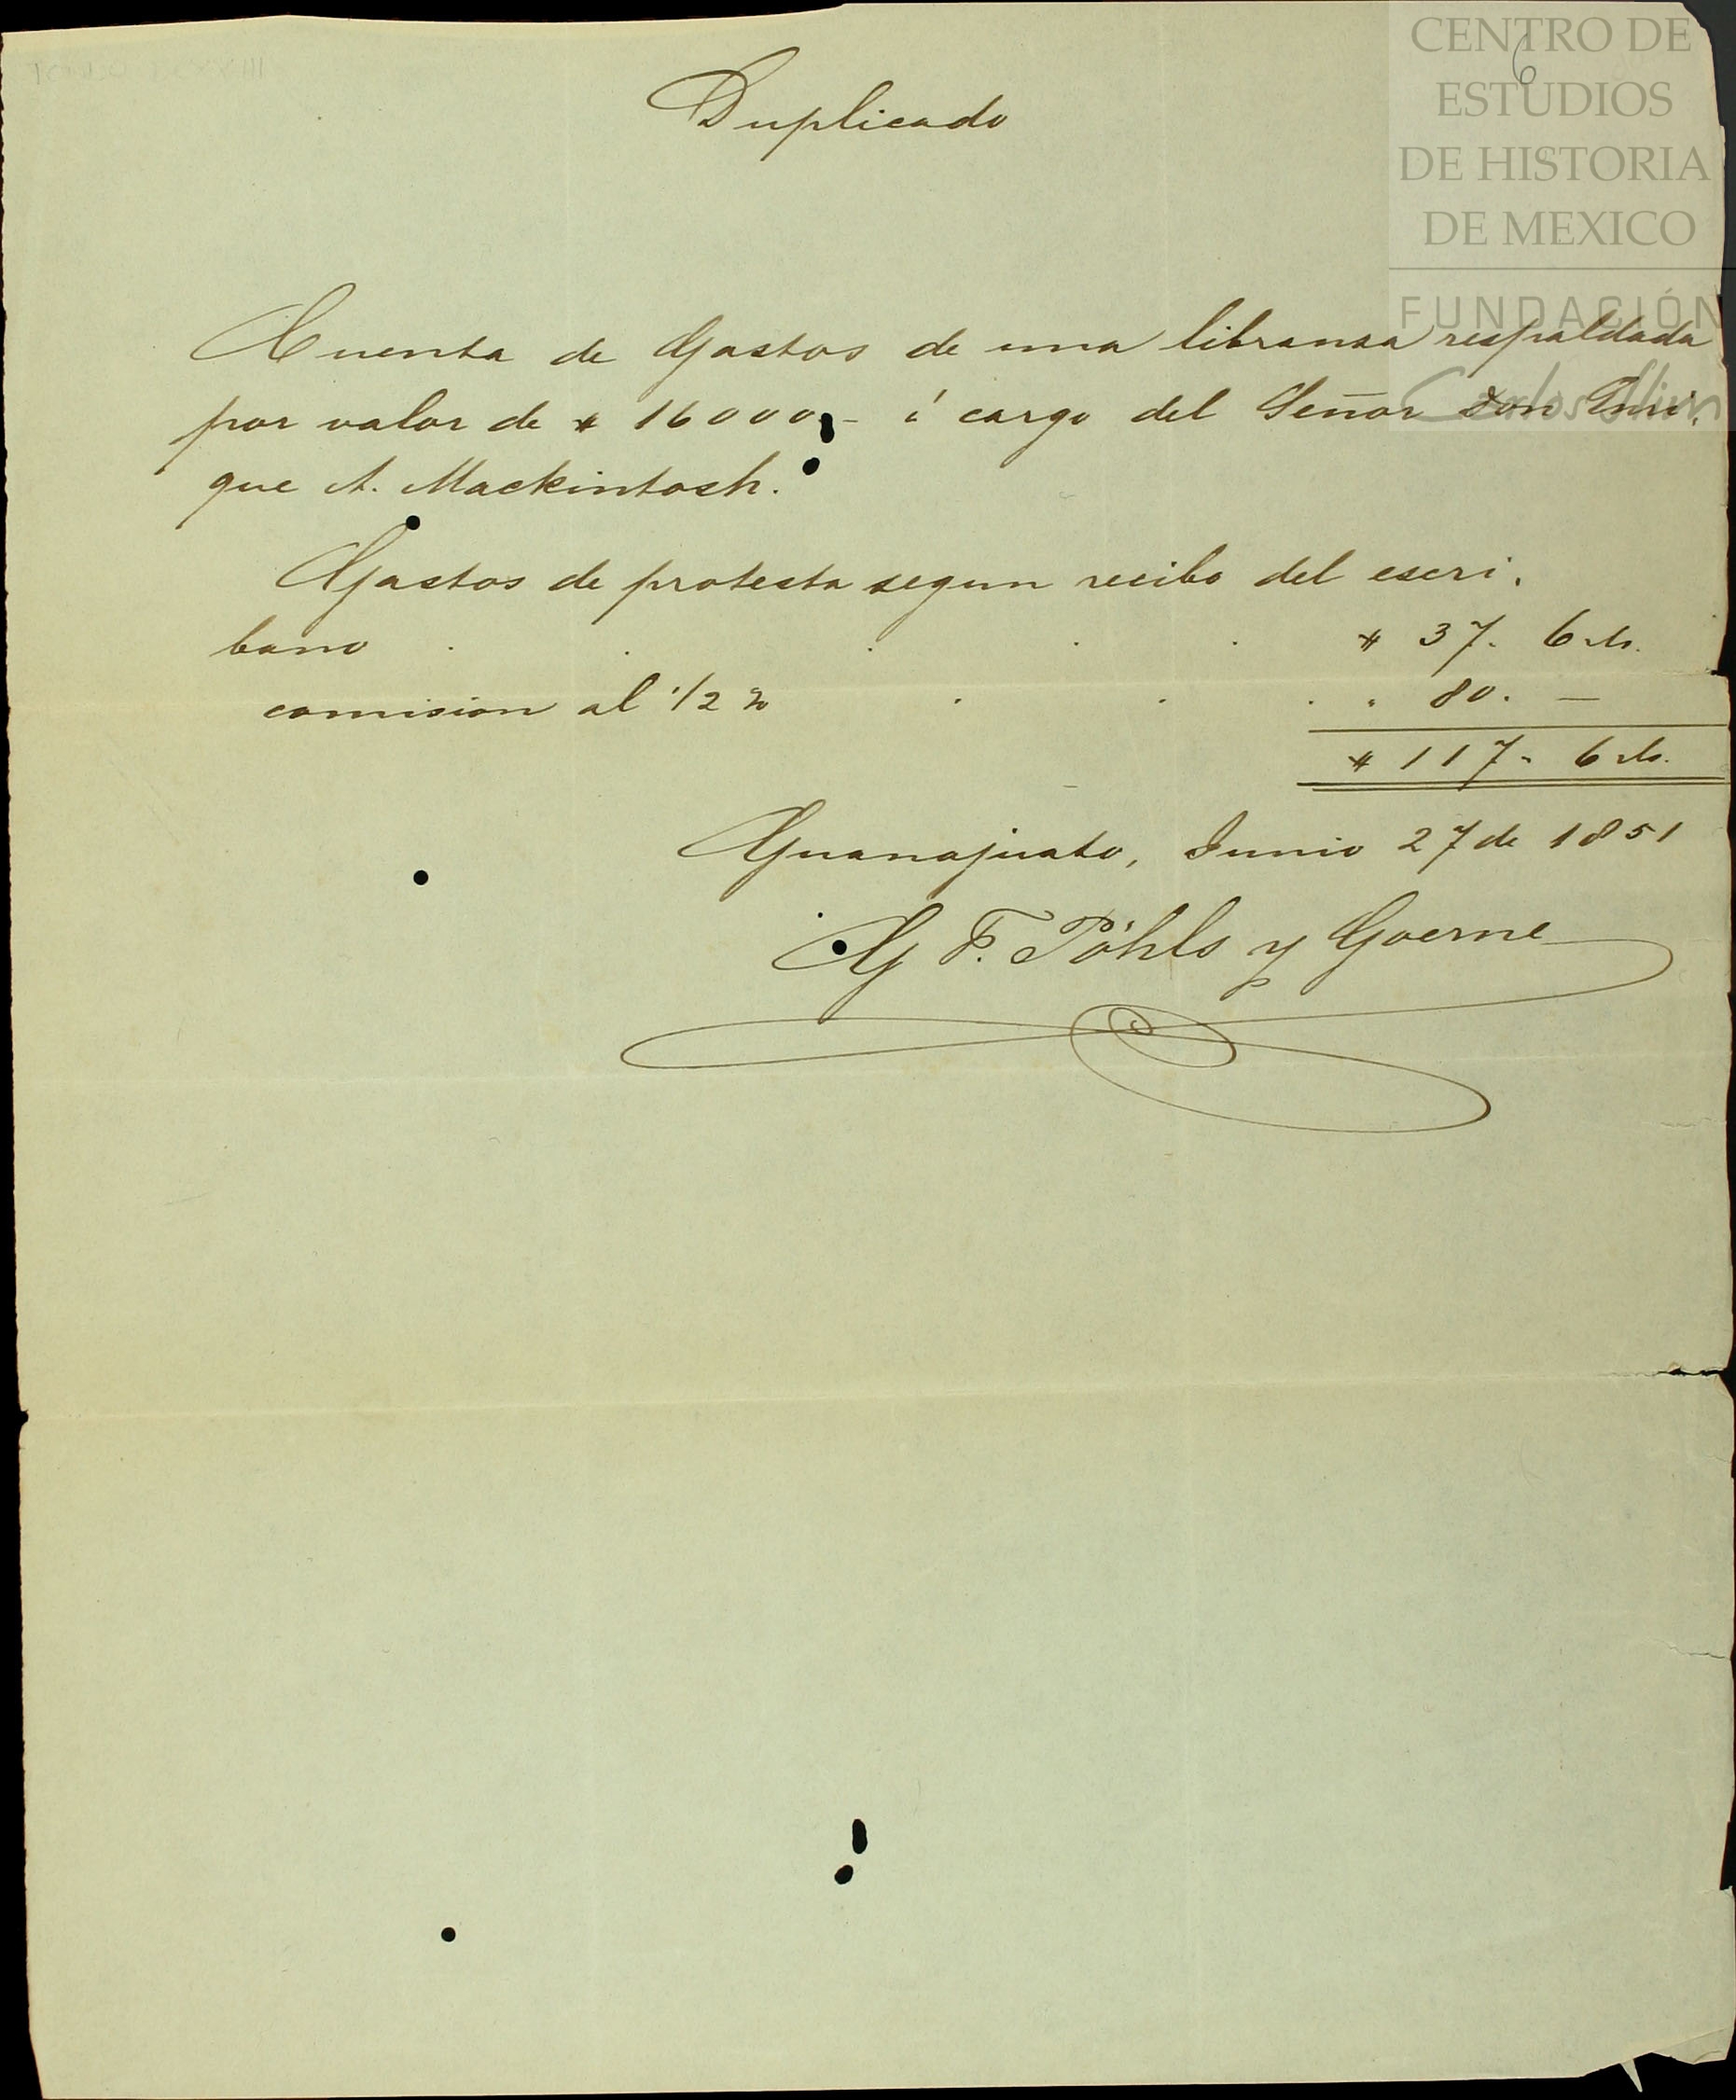 CENTRO DE
ESTUDIOS
DE HISTORIA
DE MEXICO
FUNDACIÓN
Carlos Slim
6
Duplicado
Cuenta de Gastos de una libranza respaldada
por valor de $ 16000,- á cargo del Señor Don Enri-
que A. Mackintosh.
Gastos de protesta segun recibo del escri-
bano . . . . . $ 37. 6 rls.
comision al 1/2 % . . . " 80. —
$ 117. 6 rls.
Guanajuato, Junio 27 de 1851
G F. Pöhls y Goerne